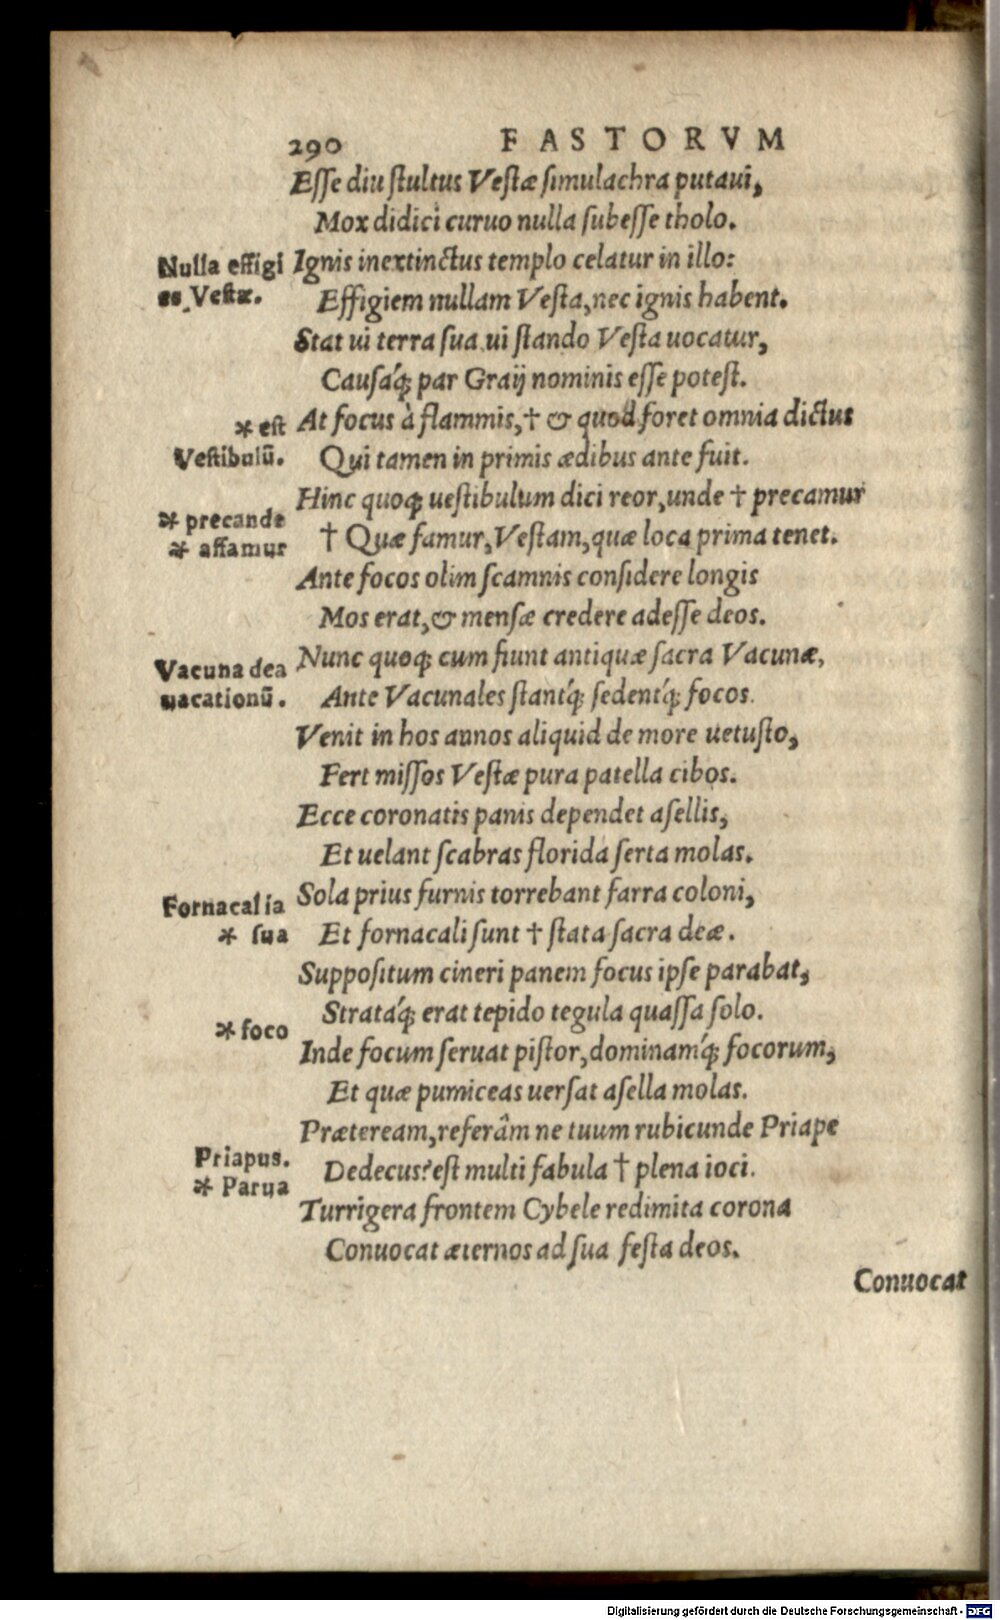 290 FASTORVM
Esse diu stultus Vestæ simulachra putaui,
Mox didici curuo nulla subesse tholo.
Nulla effigi
es Vestæ.
Ignis inextinctus templo celatur in illo:
Effigiem nullam Vesta, nec ignis habent.
Stat ui terra sua ui stando Vesta uocatur,
Causáq; par Graij nominis esse potest.
* est
Vestibulū.
At focus à flammis, † & quod foret omnia dictus
Qui tamen in primis ædibus ante fuit.
Hinc quoq; uestibulum dici reor, unde † precamur
* precande
* affamur
† Quæ famur, Vestam, quæ loca prima tenet.
Ante focos olim scamnis considere longis
Mos erat, & mensæ credere adesse deos.
Vacuna dea
uacationū.
Nunc quoq; cum fiunt antiquæ sacra Vacunæ,
Ante Vacunales stantq́; sedentq́; focos.
Venit in hos annos aliquid de more uetusto,
Fert missos Vestæ pura patella cibos.
Ecce coronatis panis dependet asellis,
Et uelant scabras florida serta molas.
Fornacalia
* sua
Sola prius furnis torrebant farra coloni,
Et fornacali sunt † stata sacra deæ.
Suppositum cineri panem focus ipse parabat,
Stratáq; erat tepido tegula quassa solo.
* foco
Inde focum seruat pistor, dominamq́; focorum,
Et quæ pumiceas uersat asella molas.
Præteream, referâm ne tuum rubicunde Priape
Priapus.
* Parua
Dedecus? est multi fabula † plena ioci.
Turrigera frontem Cybele redimita corona
Conuocat æternos ad sua festa deos.
Conuocat
Digitalisierung gefördert durch die Deutsche Forschungsgemeinschaft - DFG